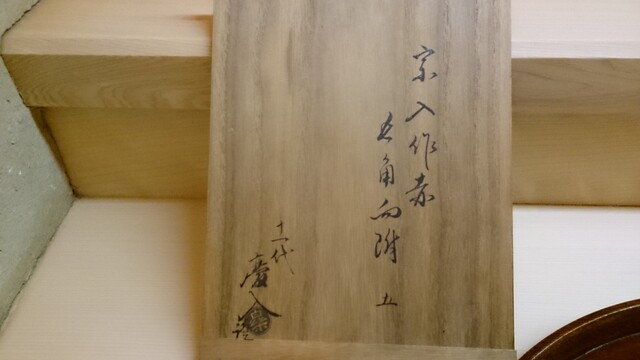 宗入作赤
五角向附 五
十一代
慶入